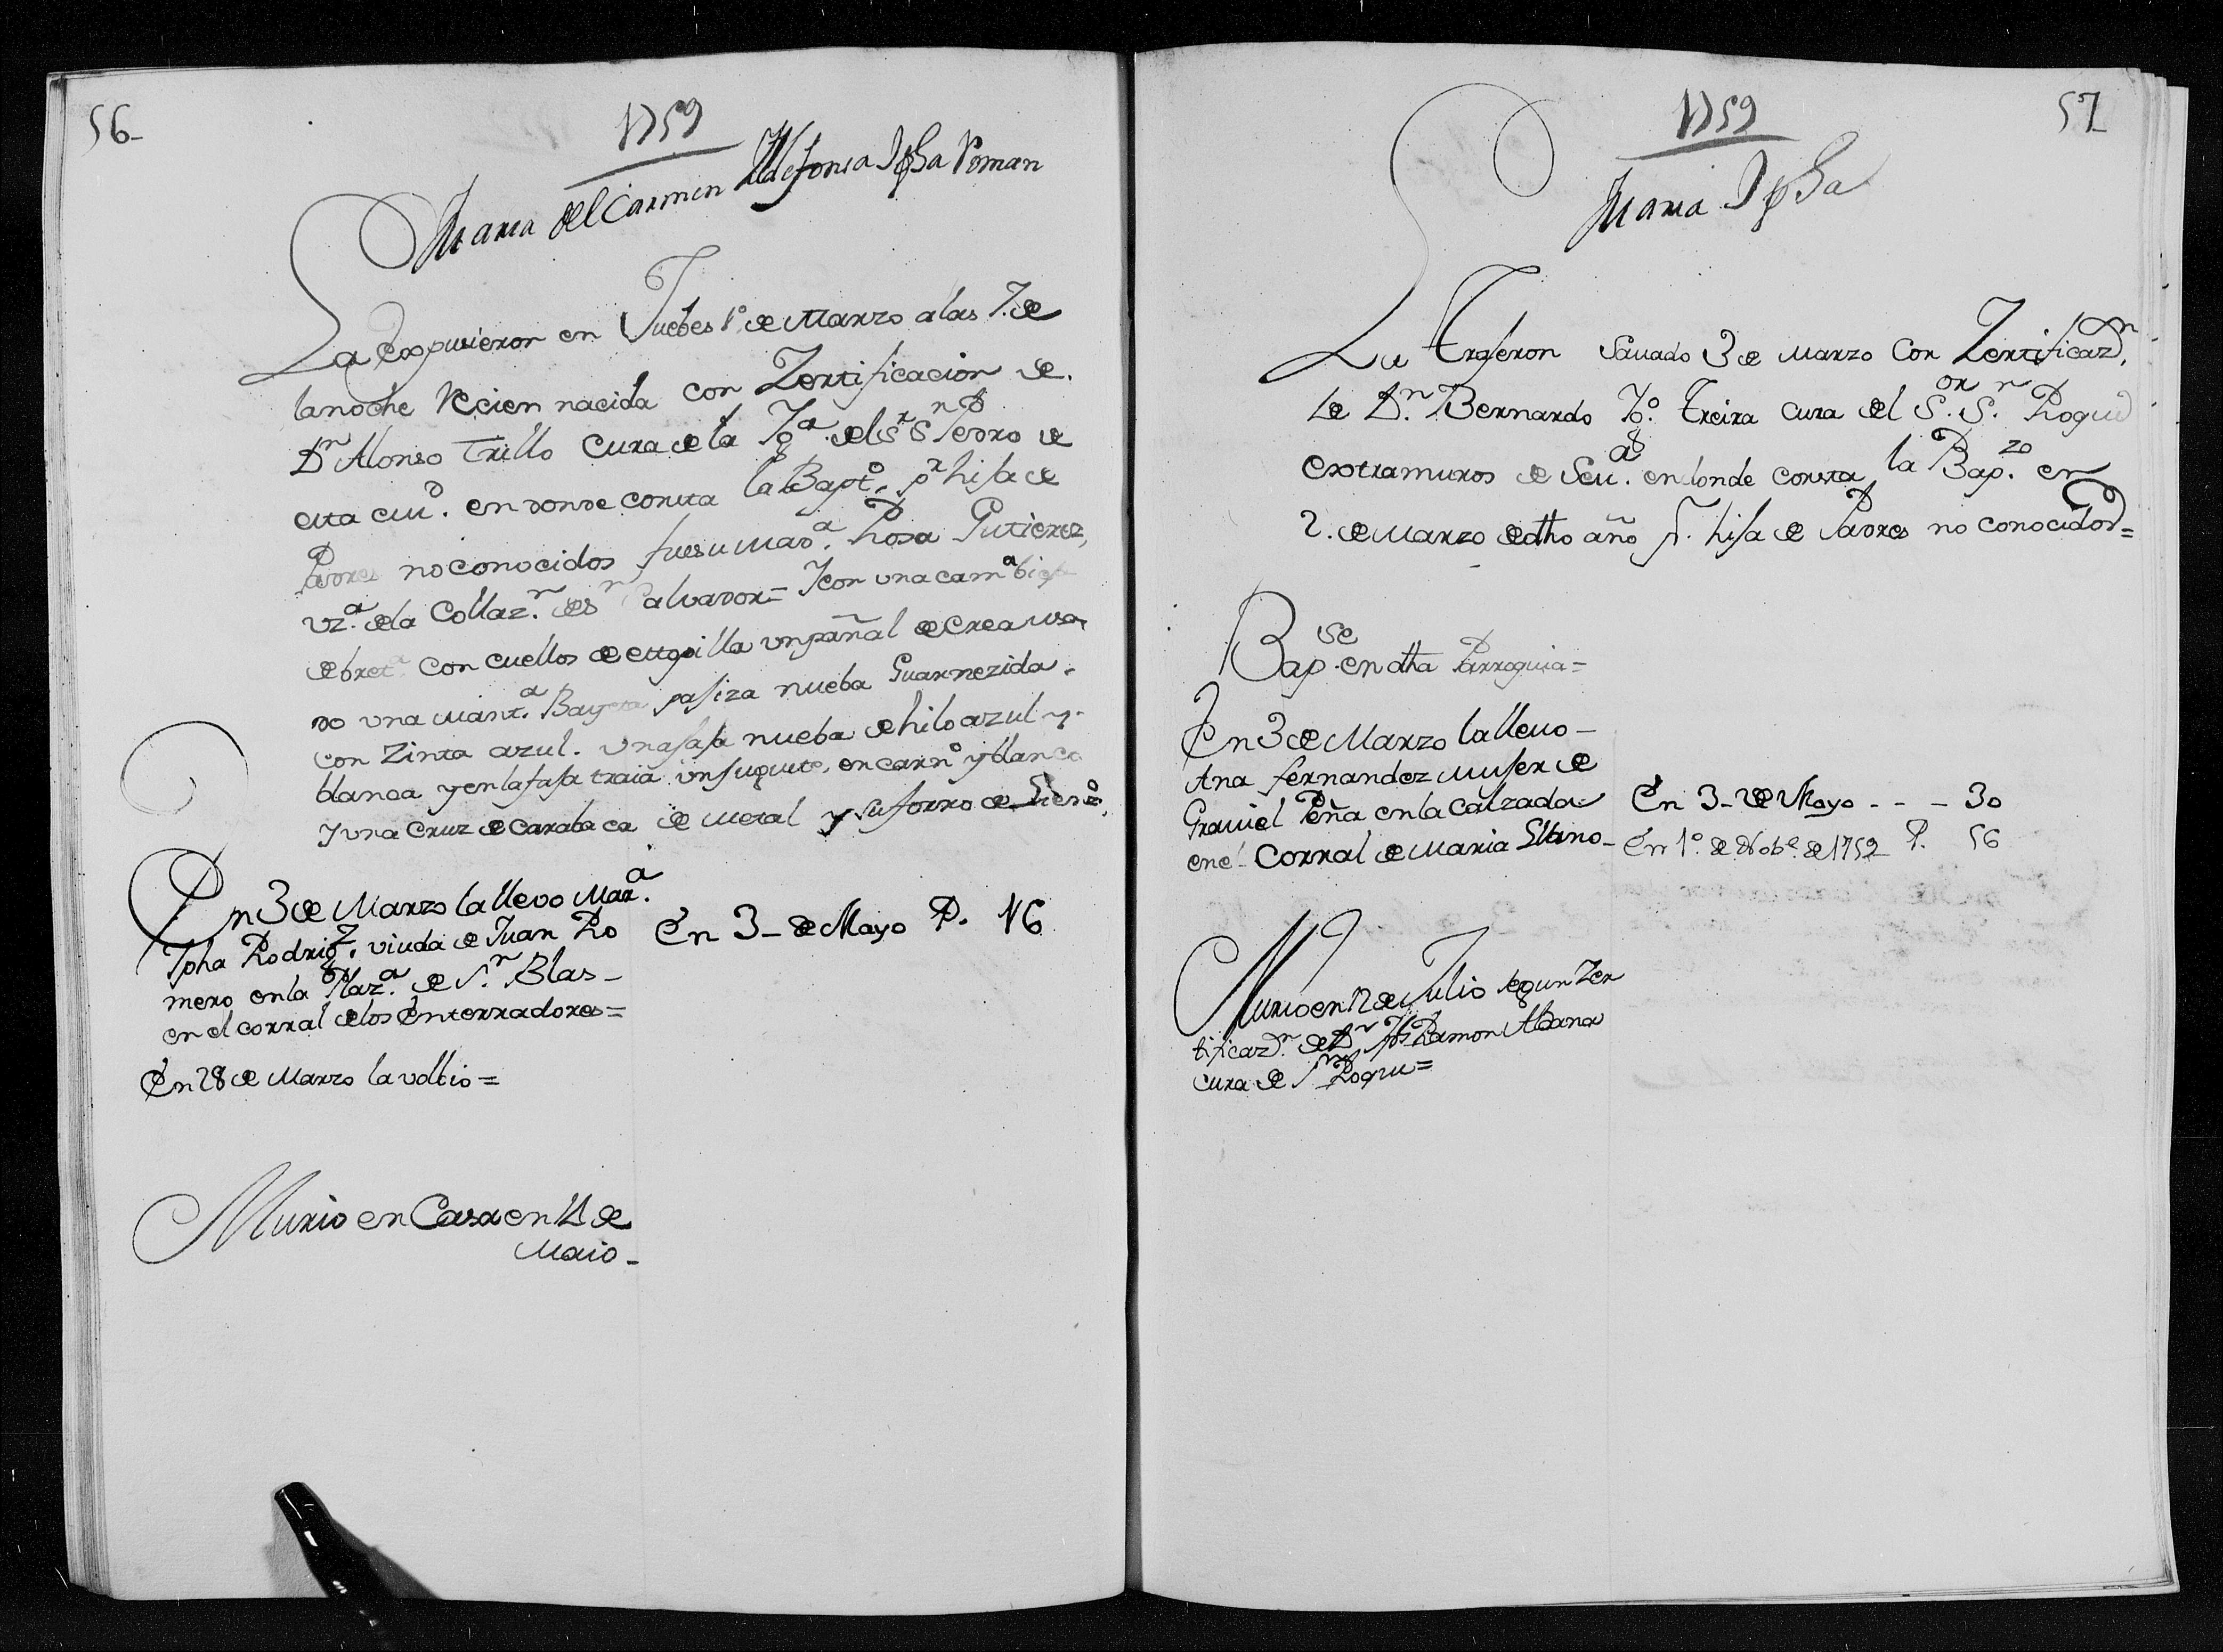 56
1759
Maria del Carmen Ildefonsa Jpha Roman
La Expusieron en Juebes 1º de Marzo a las 7. de
la noche Recien nacida con Zertificacion de
Dn Alonso Trillo Cura de la Yga. del Sr Sn Pedro de
esta ciud. en donde consta la Bapto. pr hija de
Padres no conocidos fue su Mada. Rosa Gutierez,
vza. de la Collazn. de Sn Salvador = Y con una cama bieja
de breta con cuellos de estopilla un pañal de crea usa
do una manta. Bayeta pajiza nueba Guarnezida
con Zinta azul. una faja nueba de hilo azul y
blanca y en la faja traia un juguete, encarno y blanco
y una Cruz de Carabaca de metal y su forro de Lienzo.
En 3 de Marzo la llevo Mara.
Jpha Rodrigz. viuda de Juan Ro
mero en la Plaza. de Sn. Blas
en el corral de los Enterradores =
En 3 de Mayo P. 16
En 28 de Marzo la volbio =
Murio en Casa en 14 de
Maio
57
1759
Maria Jpha
La Trageron Savado 3 de Marzo Con Zertificazn.
de Dn. Bernardo Ygo. Treira Cura del Sor. Sn. Roque
extramuros de Seva. en donde consta la Bapzo. en
2. de Marzo de dho año pr. hija de Padres no conocidos =
Bapse. en dha Parroquia =
En 3 de Marzo la llevo
Ana fernandez muger de
Graviel Peña en la Calzada
en el Corral de Maria
En 3 de Mayo - - - 30
En 1º. de Nobe. de 1759 P. 56
Murio en 12 de Julio segun Zer
tificazn. de Dn Jph Ramon
cura de Sn Roque =